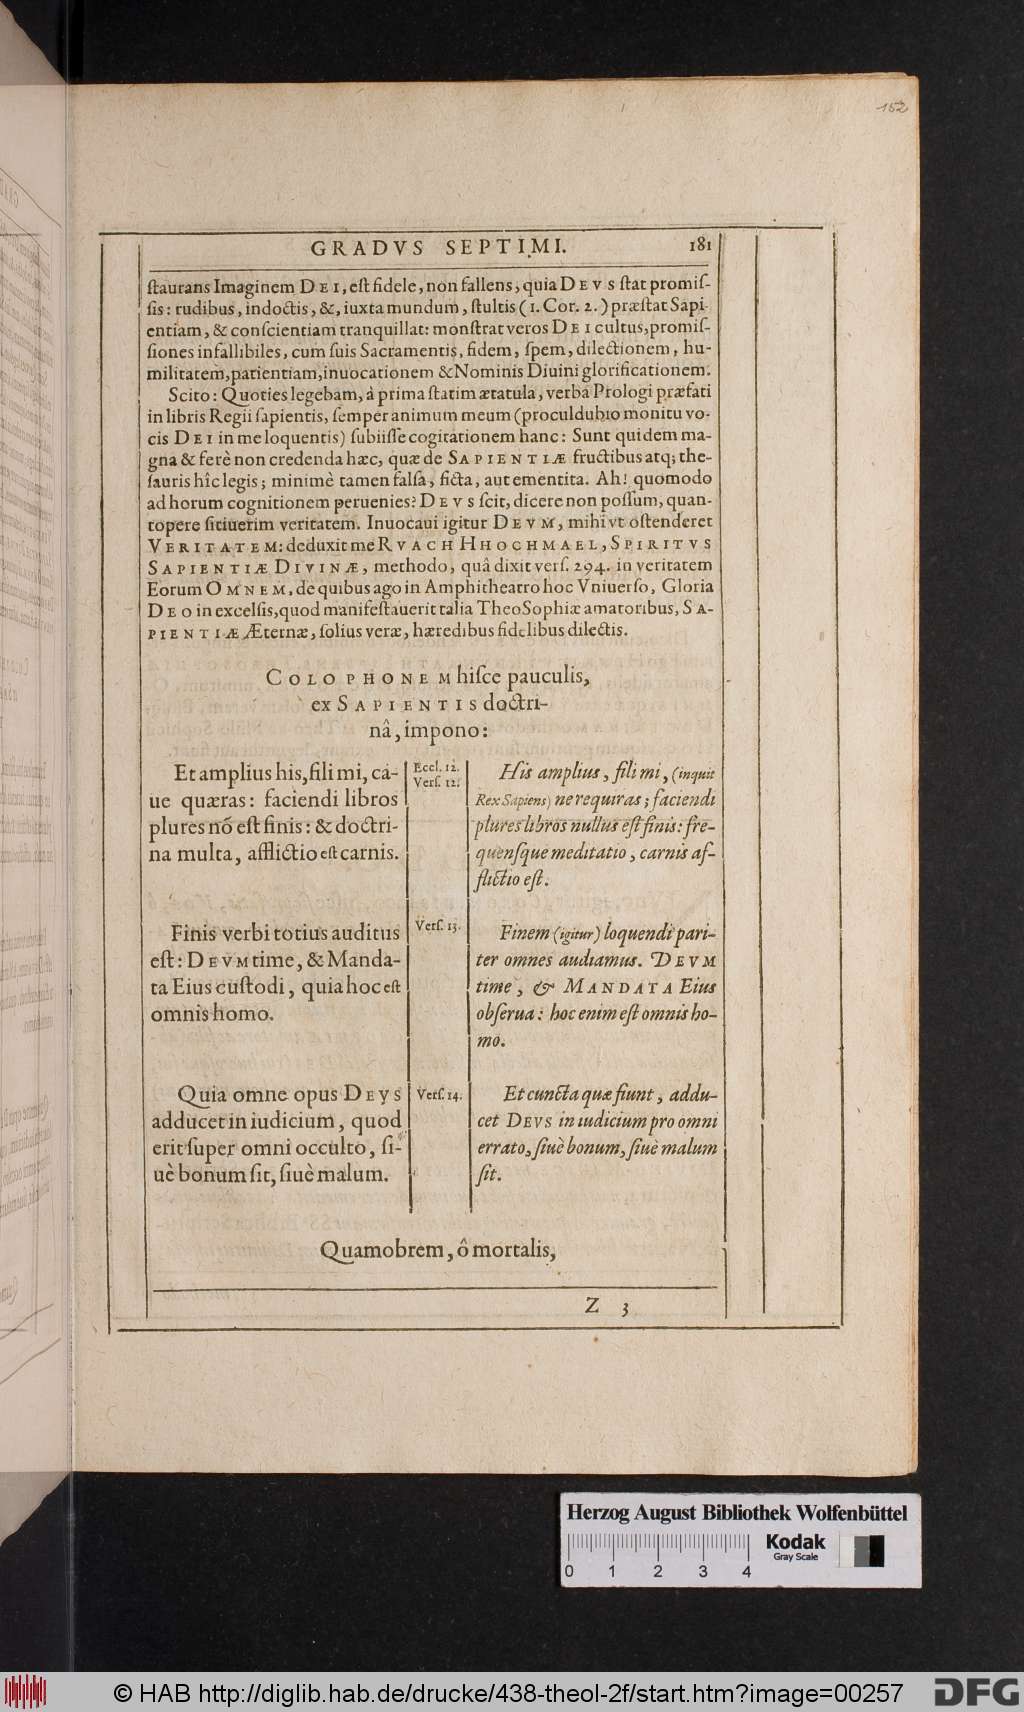 152
GRADVS SEPTIMI. 181
ſtaurans Imaginem DEI, eſt fidele, non fallens, quia DEVS ſtat promiſ-
ſis: rudibus, indoctis, &, iuxta mundum, ſtultis (1. Cor. 2.) præſtat Sapi-
entiam, & conſcientiam tranquillat: monſtrat veros DEI cultus, promiſ-
ſiones infallibiles, cum ſuis Sacramentis, fidem, ſpem, dilectionem, hu-
militatem, patientiam, inuocationem & Nominis Diuini glorificationem.
Scito: Quoties legebam, à prima ſtatim ætatula, verba Prologi præfati
in libris Regii ſapientis, ſemper animum meum (proculdubio monitu vo-
cis DEI in me loquentis) ſubiiſſe cogitationem hanc: Sunt quidem ma-
gna & ferè non credenda hæc, quæ de SAPIENTIÆ fructibus atq; the-
ſauris hîc legis; minimè tamen falſa, ficta, aut ementita. Ah! quomodo
ad horum cognitionem peruenies? DEVS ſcit, dicere non poſſum, quan-
topere ſitiuerim veritatem. Inuocaui igitur DEVM, mihi vt oſtenderet
VERITATEM: deduxit me RVACH HHOCHMAEL, SPIRITVS
SAPIENTIÆ DIVINÆ, methodo, quâ dixit verſ. 294. in veritatem
Eorum OMNEM, de quibus ago in Amphitheatro hoc Vniuerſo, Gloria
DEO in excelſis, quod manifeſtauerit talia TheoSophiæ amatoribus, SA-
PIENTIÆ Æternæ, ſolius veræ, hæredibus fidelibus dilectis.
COLOPHONEM hiſce pauculis,
ex SAPIENTIS doctri-
nâ, impono:
Et amplius his, fili mi, ca-
ue quæras: faciendi libros
plures nõ eſt finis: & doctri-
na multa, afflictio eſt carnis.
Eccl. 12.
Verſ. 12.
His amplius, fili mi, (inquit
Rex Sapiens) ne requiras; faciendi
plures libros nullus eſt finis: fre-
quenſque meditatio, carnis af-
flictio eſt.
Finis verbi totius auditus
eſt: DEVM time, & Manda-
ta Eius cuſtodi, quia hoc eſt
omnis homo.
Verſ. 13.
Finem (igitur) loquendi pari-
ter omnes audiamus. DEVM
time, & MANDATA Eius
obſerua: hoc enim eſt omnis ho-
mo.
Quia omne opus DEVS
adducet in iudicium, quod
erit ſuper omni occulto, ſi-
uè bonum ſit, ſiuè malum.
Verſ. 14.
Et cuncta quæ fiunt, addu-
cet DEVS in iudicium pro omni
errato, ſiuè bonum, ſiuè malum
ſit.
Quamobrem, ô mortalis,
Z 3
Herzog August Bibliothek Wolfenbüttel
0 1 2 3 4
Kodak
Gray Scale
© HAB http://diglib.hab.de/drucke/438-theol-2f/start.htm?image=00257
DFG